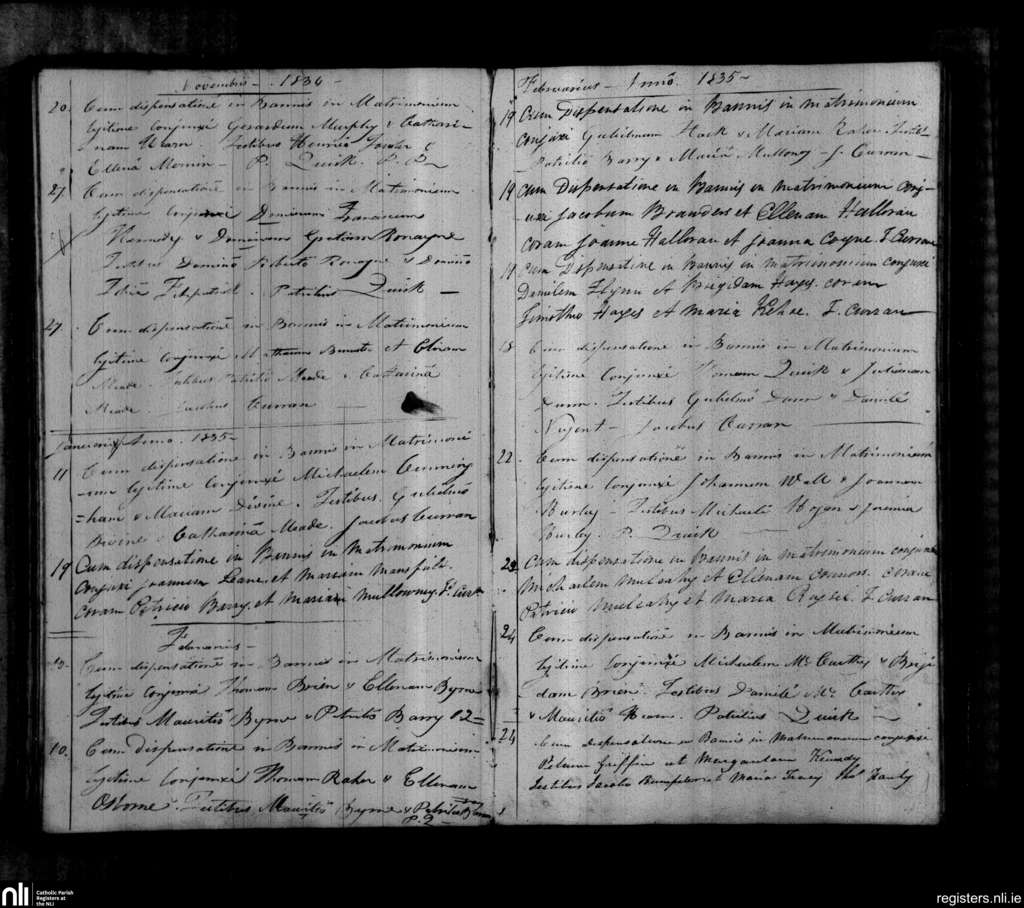 Novembris - 1834 -
20. Cum dispensatione in Bannis in Matrimonium
legitime Conjunxi Gerardum Murphy & Cathari-
nam Hearn. Testibus Henrico
Ellenâ P. Quirk. P. P.
27. Cum dispensatione in Bannis in Matrimonium
legitime Conjunxi Dominum Franciscum
Kennedy & Dominam Ronayne
Testibus Domino Roberto Ronayne & Domino
Fitzpatrick. Patritius Quirk —
27. Cum dispensatione in Bannis in Matrimonium
legitime Conjunxi et
Meade. Testibus Patritio Meade & Catharinâ
Meade. Jacobus Curran —
Januarius Anno 1835 -
11 Cum dispensatione in Bannis in Matrimoni
-um legitime Conjunxi Michaelem Cunning
=ham & Mariam Divine. Testibus. Gulielmo
Divine & Catharinâ Meade. Jacobus Curran
19 Cum dispensatione in Bannis in Matrimonium
Conjuxi Joannem Leane, et Mariam Mansfield.
coram Patricio Barry, et Mariam Mullowny. J. Curran
Februarius -
Cum dispensatione in Bannis in Matrimonium
legitime Conjunxi Thomam Brien & Ellenam Byrne
Testibus Mauritio Byrne & Patritio Barry
10. Cum Dispensatione in Bannis in Matrimonium
legitime Conjunxi Thomam Raher & Ellenam
Osborne. Testibus Mauritio Byrne &
P. Q
Februarius - Anno 1835 -
19 Cum Dispensatione in Bannis in matrimonium
conjuxi Gulielmum Hack & Mariam Raher. Testibus
Patritio Barry & Mariâ Mullowny - J. Curran -
19 Cum Dispensatione in Bannis in matrimonium conj-
-uxi Jacobum Brauders et Ellenam Halloran
coram Joanne Halloran et Joanna Coyne. J. Curran
Cum Dispensatione in Bannis in matrimonium conjuxi
Danielem Flynn et Brigidam Hayes. coram
Timotheo Hayes et Maria Kehoe. J. Curran
18 Cum dispensatione in Bannis in Matrimonium
legitime Conjunxi Thomam Quirk & Julianam
Dunn. Testibus Gulielmo Dunn & Daniele
Nugent - Jacobus Curran
22. Cum dispensatione in Bannis in Matrimonium
legitime Conjunxi Johannem Wall & Joannam
Hurley - Testibus Michaele Hogan & Joannâ
Hurley. P. Quirk —
22 Cum dispensatione in Bannis in matrimonium conjuxi
Michaelem Mulcahy et Ellenam Connors. coram
Patricio Mulcahy et Maria J. Curran
24 Cum dispensatione in Bannis in Matrimonium
legitime Conjunxi Michaelem Mc Carthy & Brigi
dam Brien. Testibus Daniele Mc Carthy
& Mauritio Hearn. Patritius Quirk —
24 Cum dispensatione in Bannis in Matrimonium conjunxi
Petrum Griffin et Margaritam Kennedy
Testibus Jacobo et Maria Hanly
nli
Catholic Parish
Registers at
the NLI
registers.nli.ie